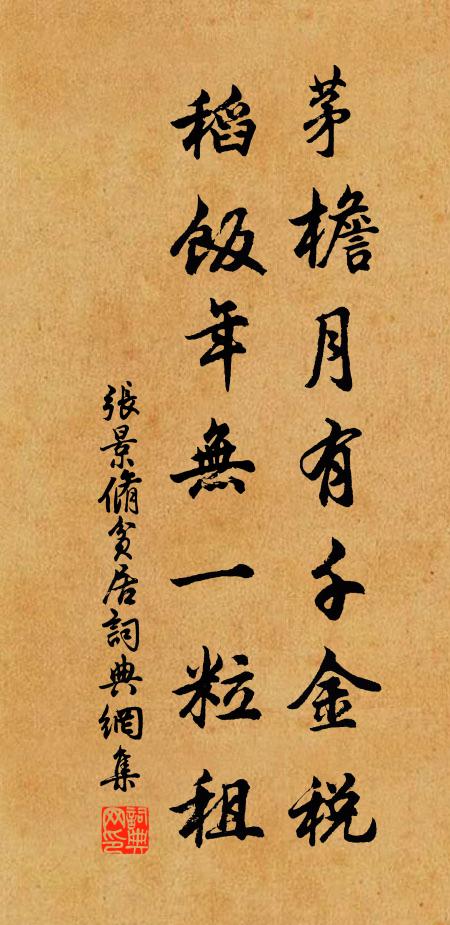 茅檐月有千金税
稻飯年無一粒租
張景脩貧居詞典網集
詞典网印